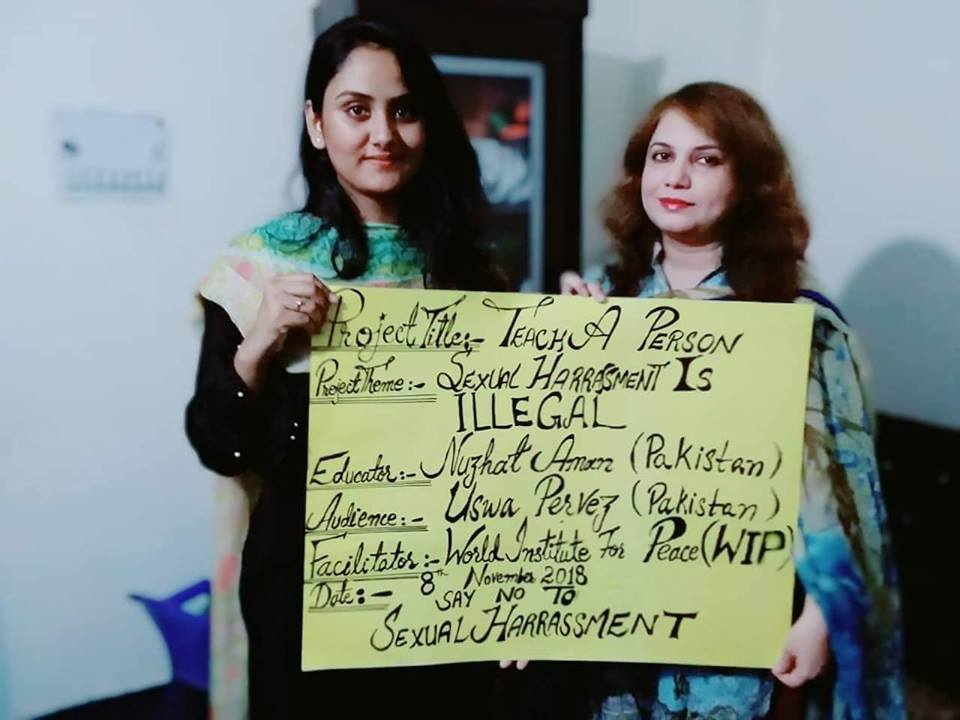 Project Title:- TEACH A PERSON
Project Theme:- SEXUAL HARRASMENT IS
ILLEGAL
Educator:- Nuzhat Aman (Pakistan)
Audience:- Uswa Pervez (Pakistan)
Facilitator:- World Institute For Peace (WIP)
Date:- 8th November 2018
SAY NO TO
SEXUAL HARRASSMENT